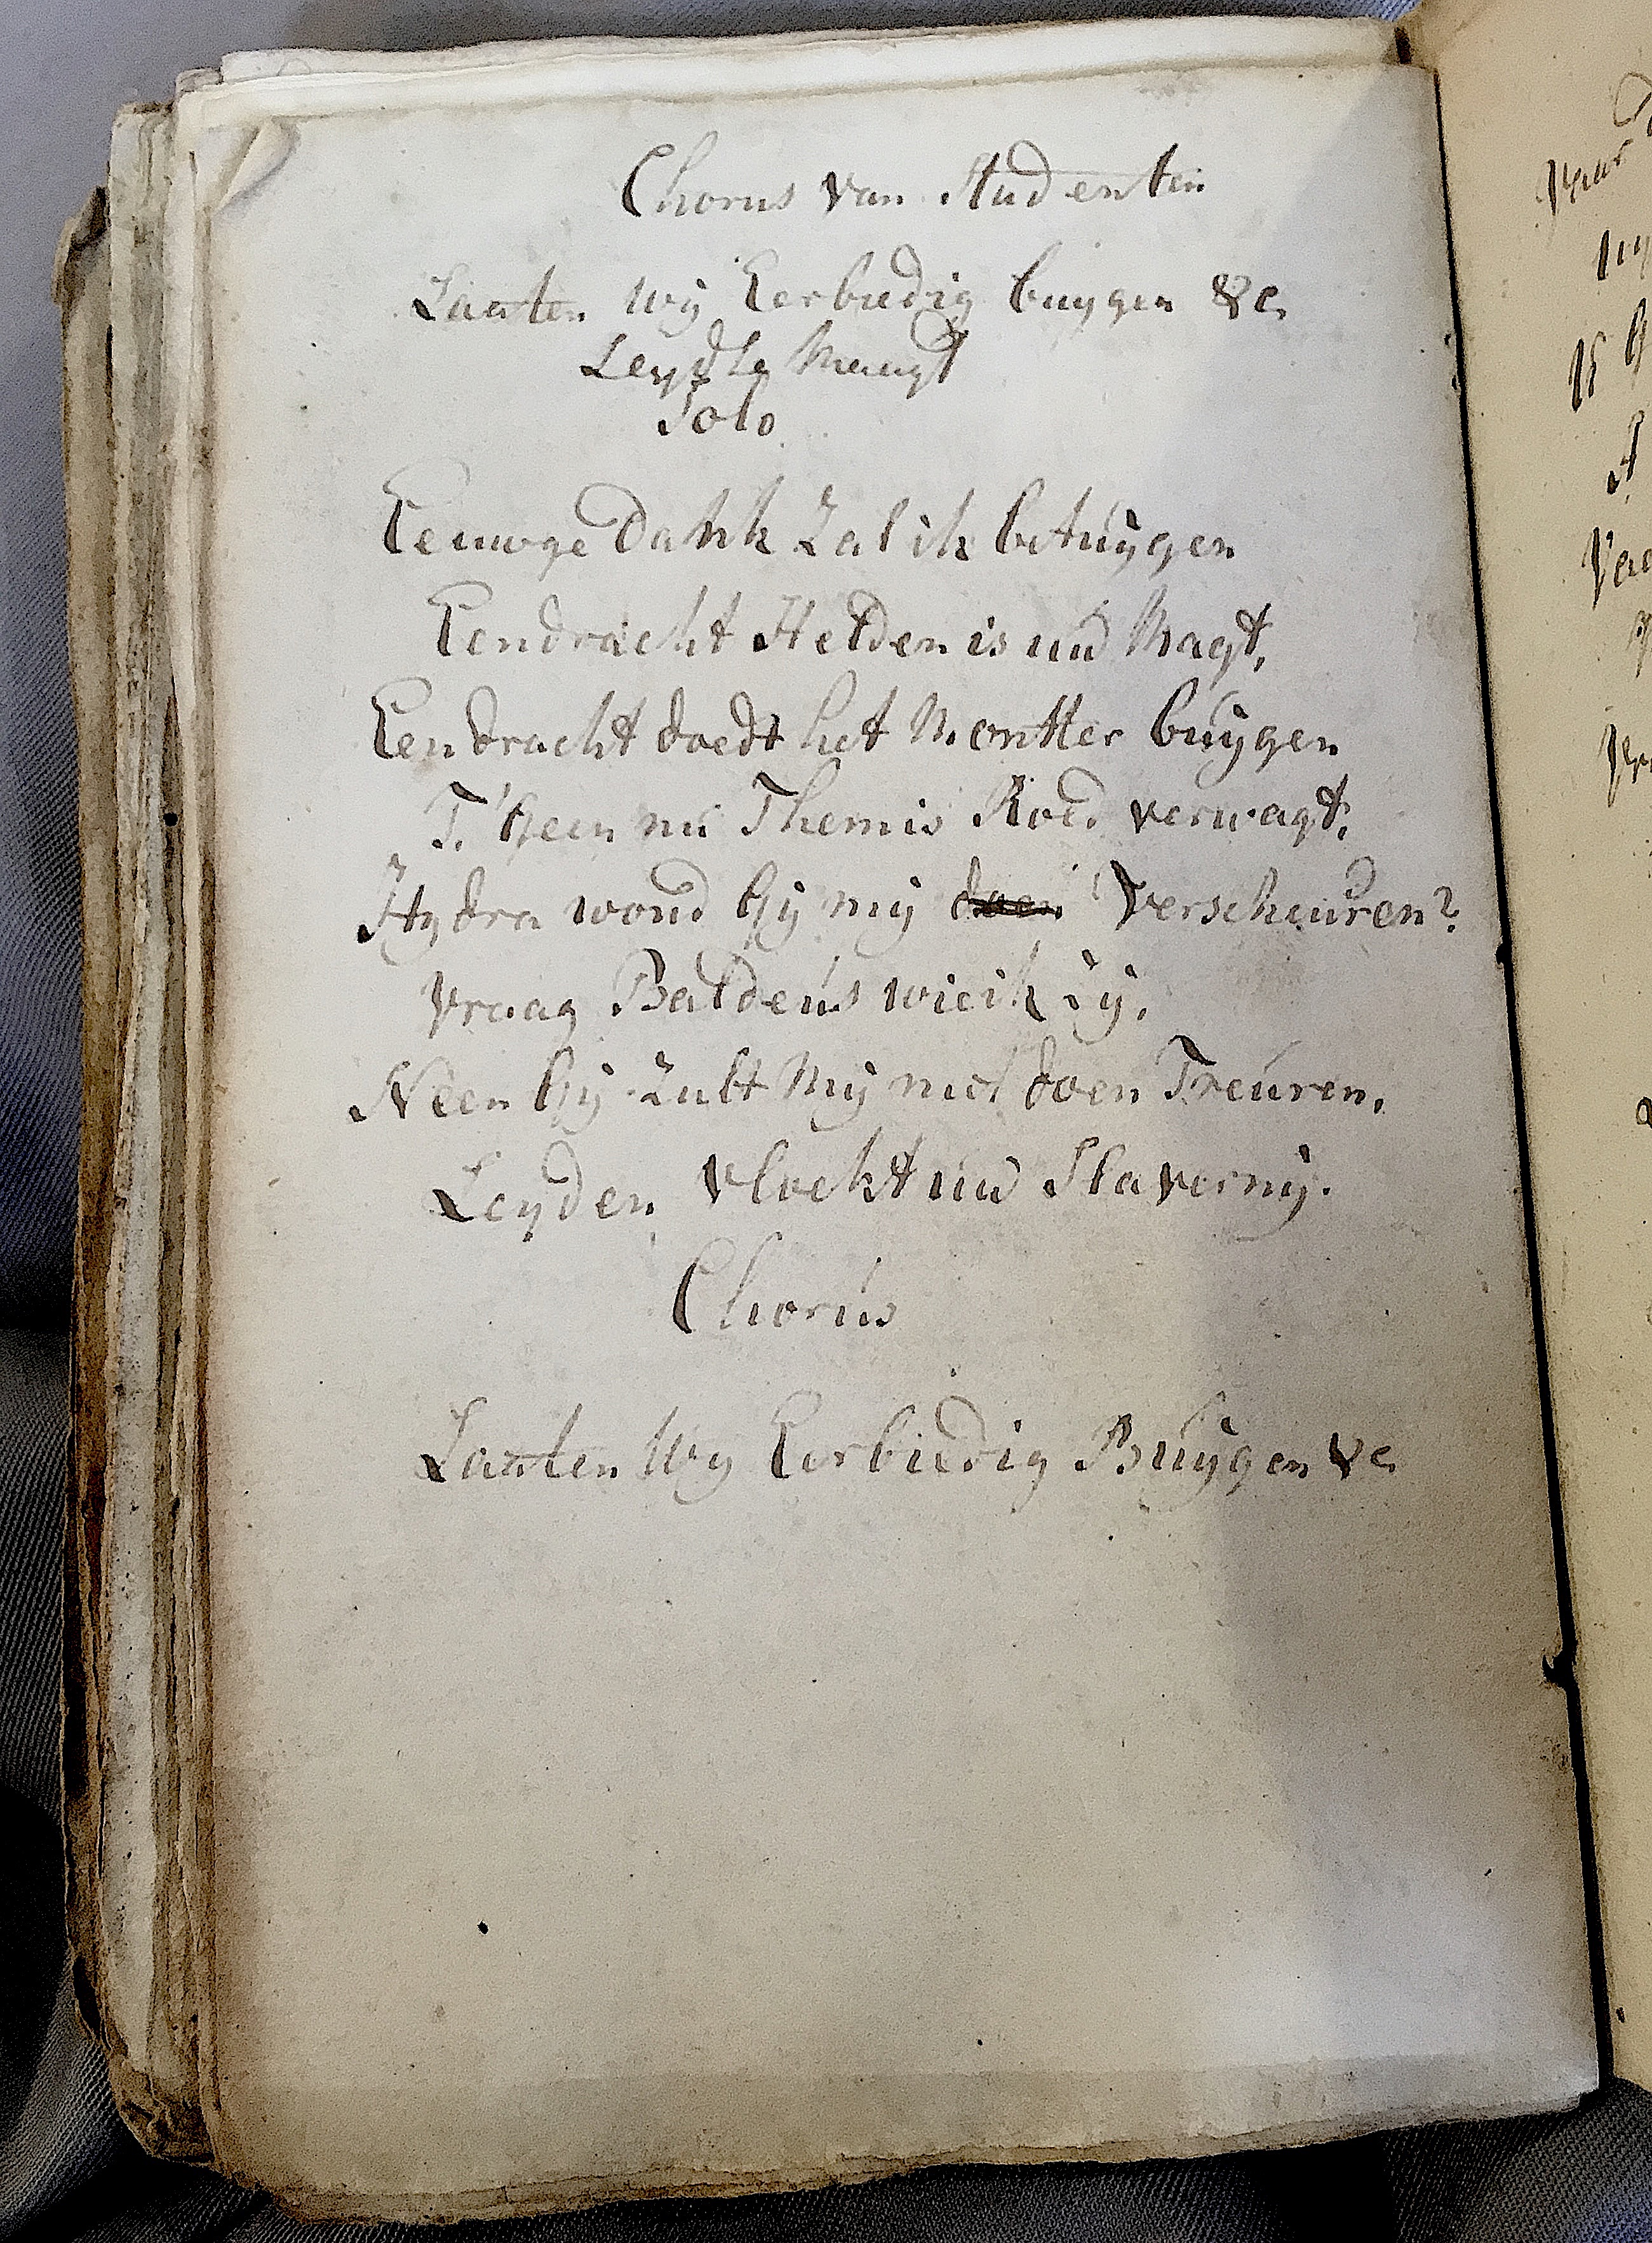 Chorus van Studenten
Laaten wij Eerbiedig buygen &c
Leydse Maagt
Solo
Eeuwge Dank Zal ik betuijgen
Eendracht Helden is uw Magt,
Eendracht doedt het Monster buijgen
T. Geen nu Themis Roed verwagt,
Hydra woud Gij mij Verscheuren?
Vraag Baldeus wie ik zij,
Neen Gij Zult Mij niet doen Treuren,
Leyden vloekt uw Slavernij.
Chorus
Laaten Wy Eerbiedig Buijgen &c